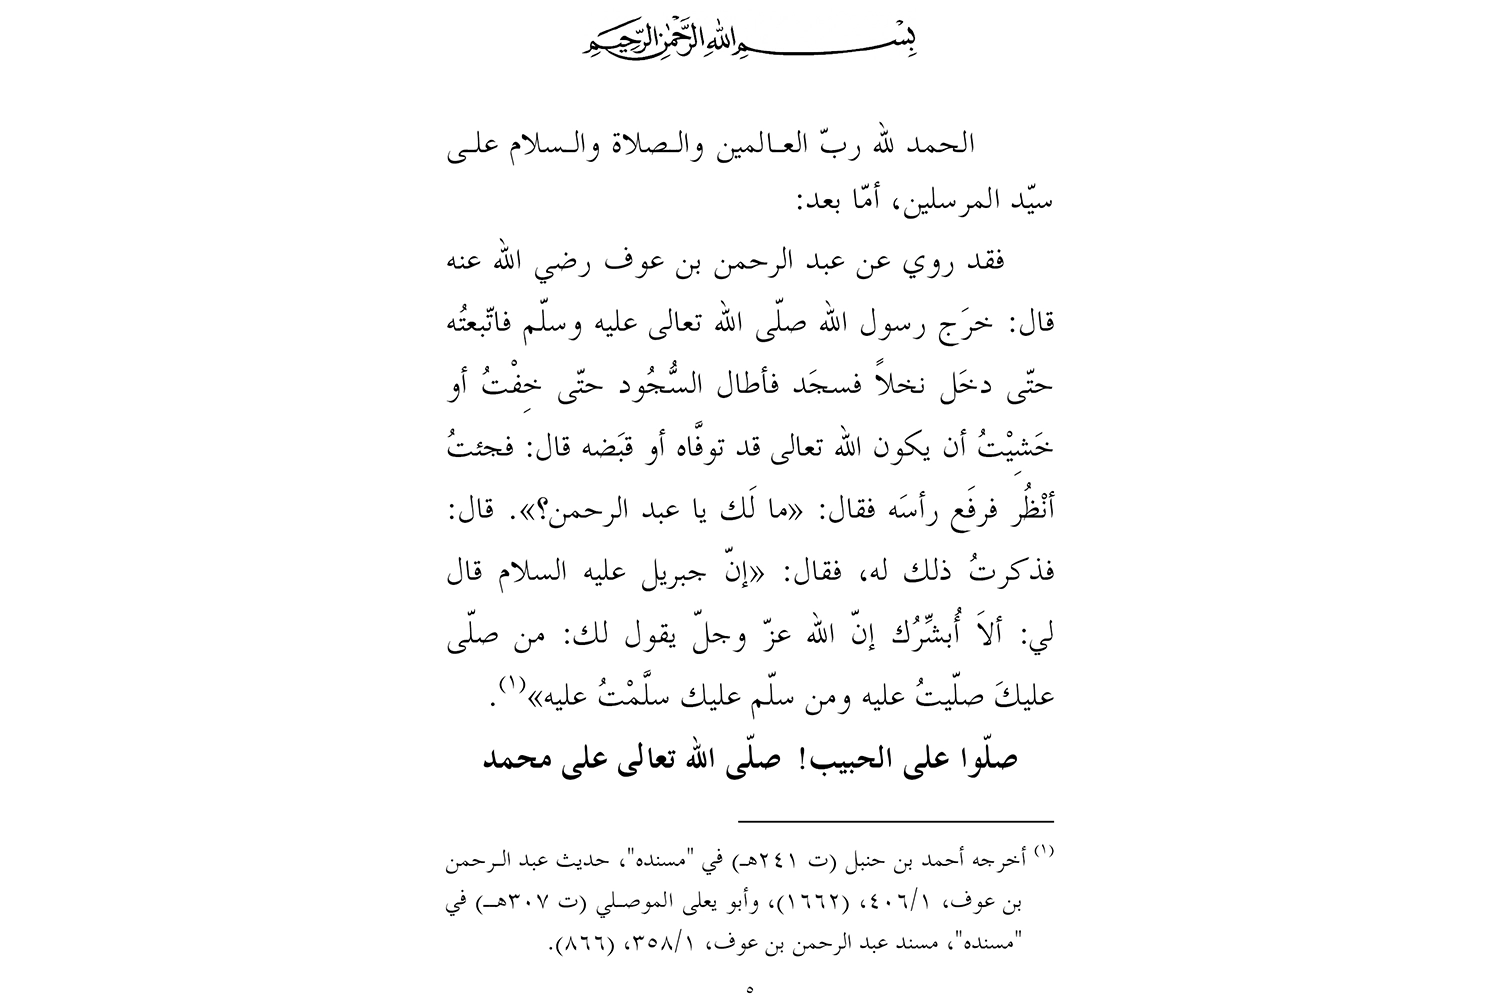 بِسْمِ اللهِ الرَّحْمٰنِ الرَّحِيْمِ
الحمد لله ربّ العالمين والصلاة والسلام على
سيّد المرسلين، أمّا بعد:
فقد روي عن عبد الرحمن بن عوف رضي الله عنه
قال: خرَج رسول الله صلّى الله تعالى عليه وسلّم فاتّبعتُه
حتّى دخَل نخلاً فسجَد فأطال السُّجُود حتّى خِفْتُ أو
خَشِيْتُ أن يكون الله تعالى قد توفَّاه أو قبَضه قال: فجئتُ
أنْظُر فرفَع رأسَه فقال: «ما لَك يا عبد الرحمن؟». قال:
فذكرتُ ذلك له، فقال: «إنّ جبريل عليه السلام قال
لي: ألاَ أُبشِّرُك إنّ الله عزّ وجلّ يقول لك: من صلّى
عليكَ صلّيتُ عليه ومن سلّم عليك سلَّمْتُ عليه»(١).
صلّوا على الحبيب! صلّى الله تعالى على محمد
(١) أخرجه أحمد بن حنبل (ت ٢٤١هـ) في "مسنده"، حديث عبد الرحمن
بن عوف، ٤٠٦/١، (١٦٦٢)، وأبو يعلى الموصلي (ت ٣٠٧هـ) في
"مسنده"، مسند عبد الرحمن بن عوف، ٣٥٨/١، (٨٦٦).
٥